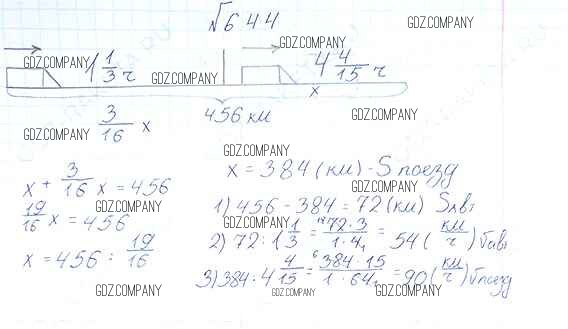 №644
GDZ.COMPANY
GDZ.COMPANY
GDZ.COMPANY 1 1/3 ч GDZ.COMPANY 4 4/15 ч
x
GDZ.COMPANY 3/16 x 456 км GDZ.COMPANY
GDZ.COMPANY
x = 384 (км) - S поезд
GDZ.COMPANY
x + 3/16 x = 456
GDZ.COMPANY
19/16 x = 456
x = 456 : 19/16
GDZ.COMPANY
1) 456 - 384 = 72 (км) Sавт
GDZ.COMPANY GDZ.COMPANY
2) 72 : 1 1/3 = 72·3/1·4 = 54 (км/ч) Vавт
GDZ.COMPANY
3) 384 : 4 4/15 = 384·15/1·64 = 90 (км/ч) Vпоезд
GDZ.COMPANY GDZ.COMPANY